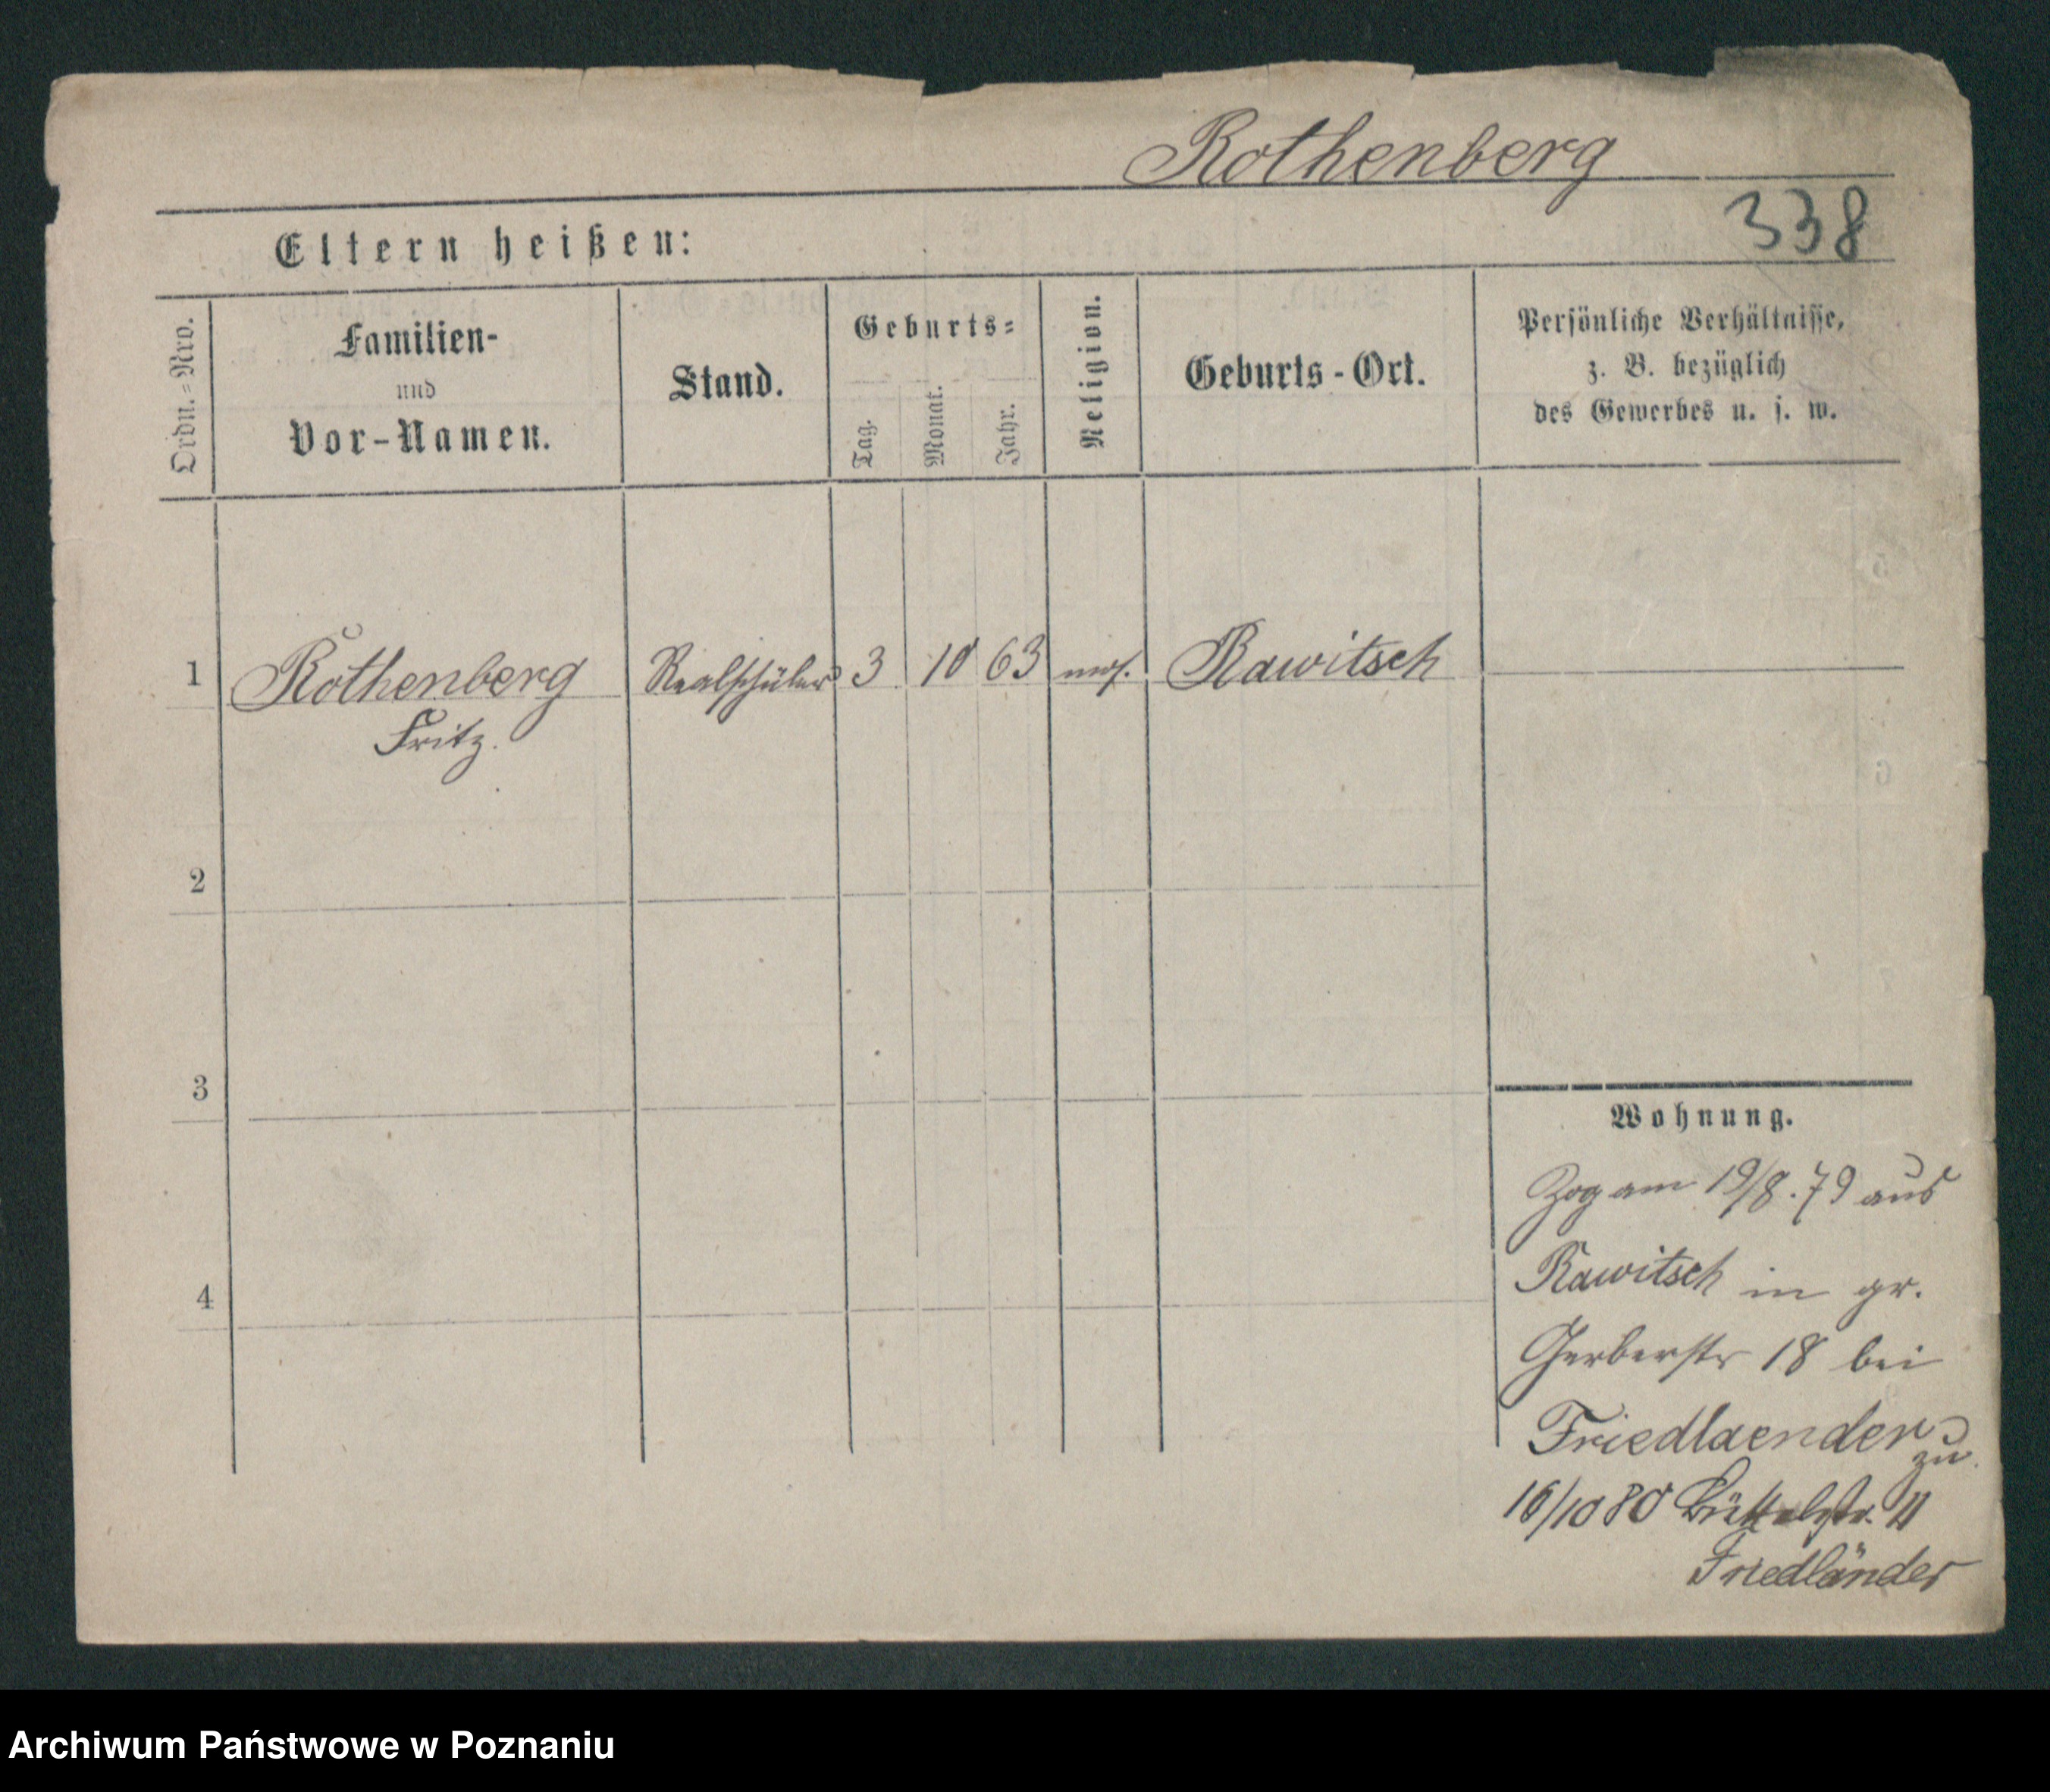 Rothenberg
338
Eltern heißen:
Ordn.=Nro.
Familien-
und
Vor-Namen.
Stand.
Geburts=
Tag.
Monat.
Jahr.
Religion.
Geburts-Ort.
Persönliche Verhältnisse,
z. B. bezüglich
des Gewerbes u. s. w.
1 Rothenberg Realschüler 3 10 63 mos. Rawitsch
Fritz.
2
3
4
Wohnung.
Zog am 19/8.79 aus
Rawitsch in gr.
Gerberstr 18 bei
Friedlaender zu
16/10 80 Büttelstr. 11
Friedländer
Archiwum Państwowe w Poznaniu